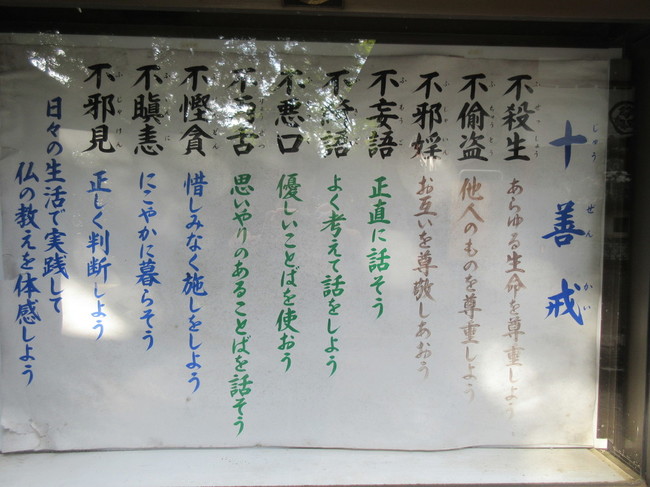 十善戒
じゅうぜんかい
不殺生
ふせっしょう
あらゆる生命を尊重しよう
不偸盗
ふちゅうとう
他人のものを尊重しよう
不邪婬
お互いを尊敬しあおう
不妄語
ふもうご
正直に話そう
不綺語
よく考えて話をしよう
不悪口
優しいことばを使おう
不両舌
思いやりのあることばを話そう
不慳貪
惜しみなく施しをしよう
不瞋恚
にこやかに暮らそう
不邪見
ふじゃけん
正しく判断しよう
日々の生活で実践して
仏の教えを体感しよう